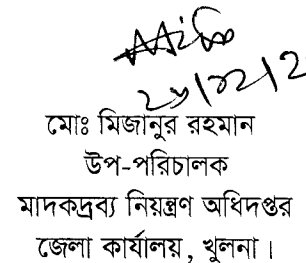 মোঃ মিজানুর রহমান
উপ-পরিচালক
মাদকদ্রব্য নিয়ন্ত্রণ অধিদপ্তর
জেলা কার্যালয়, খুলনা।